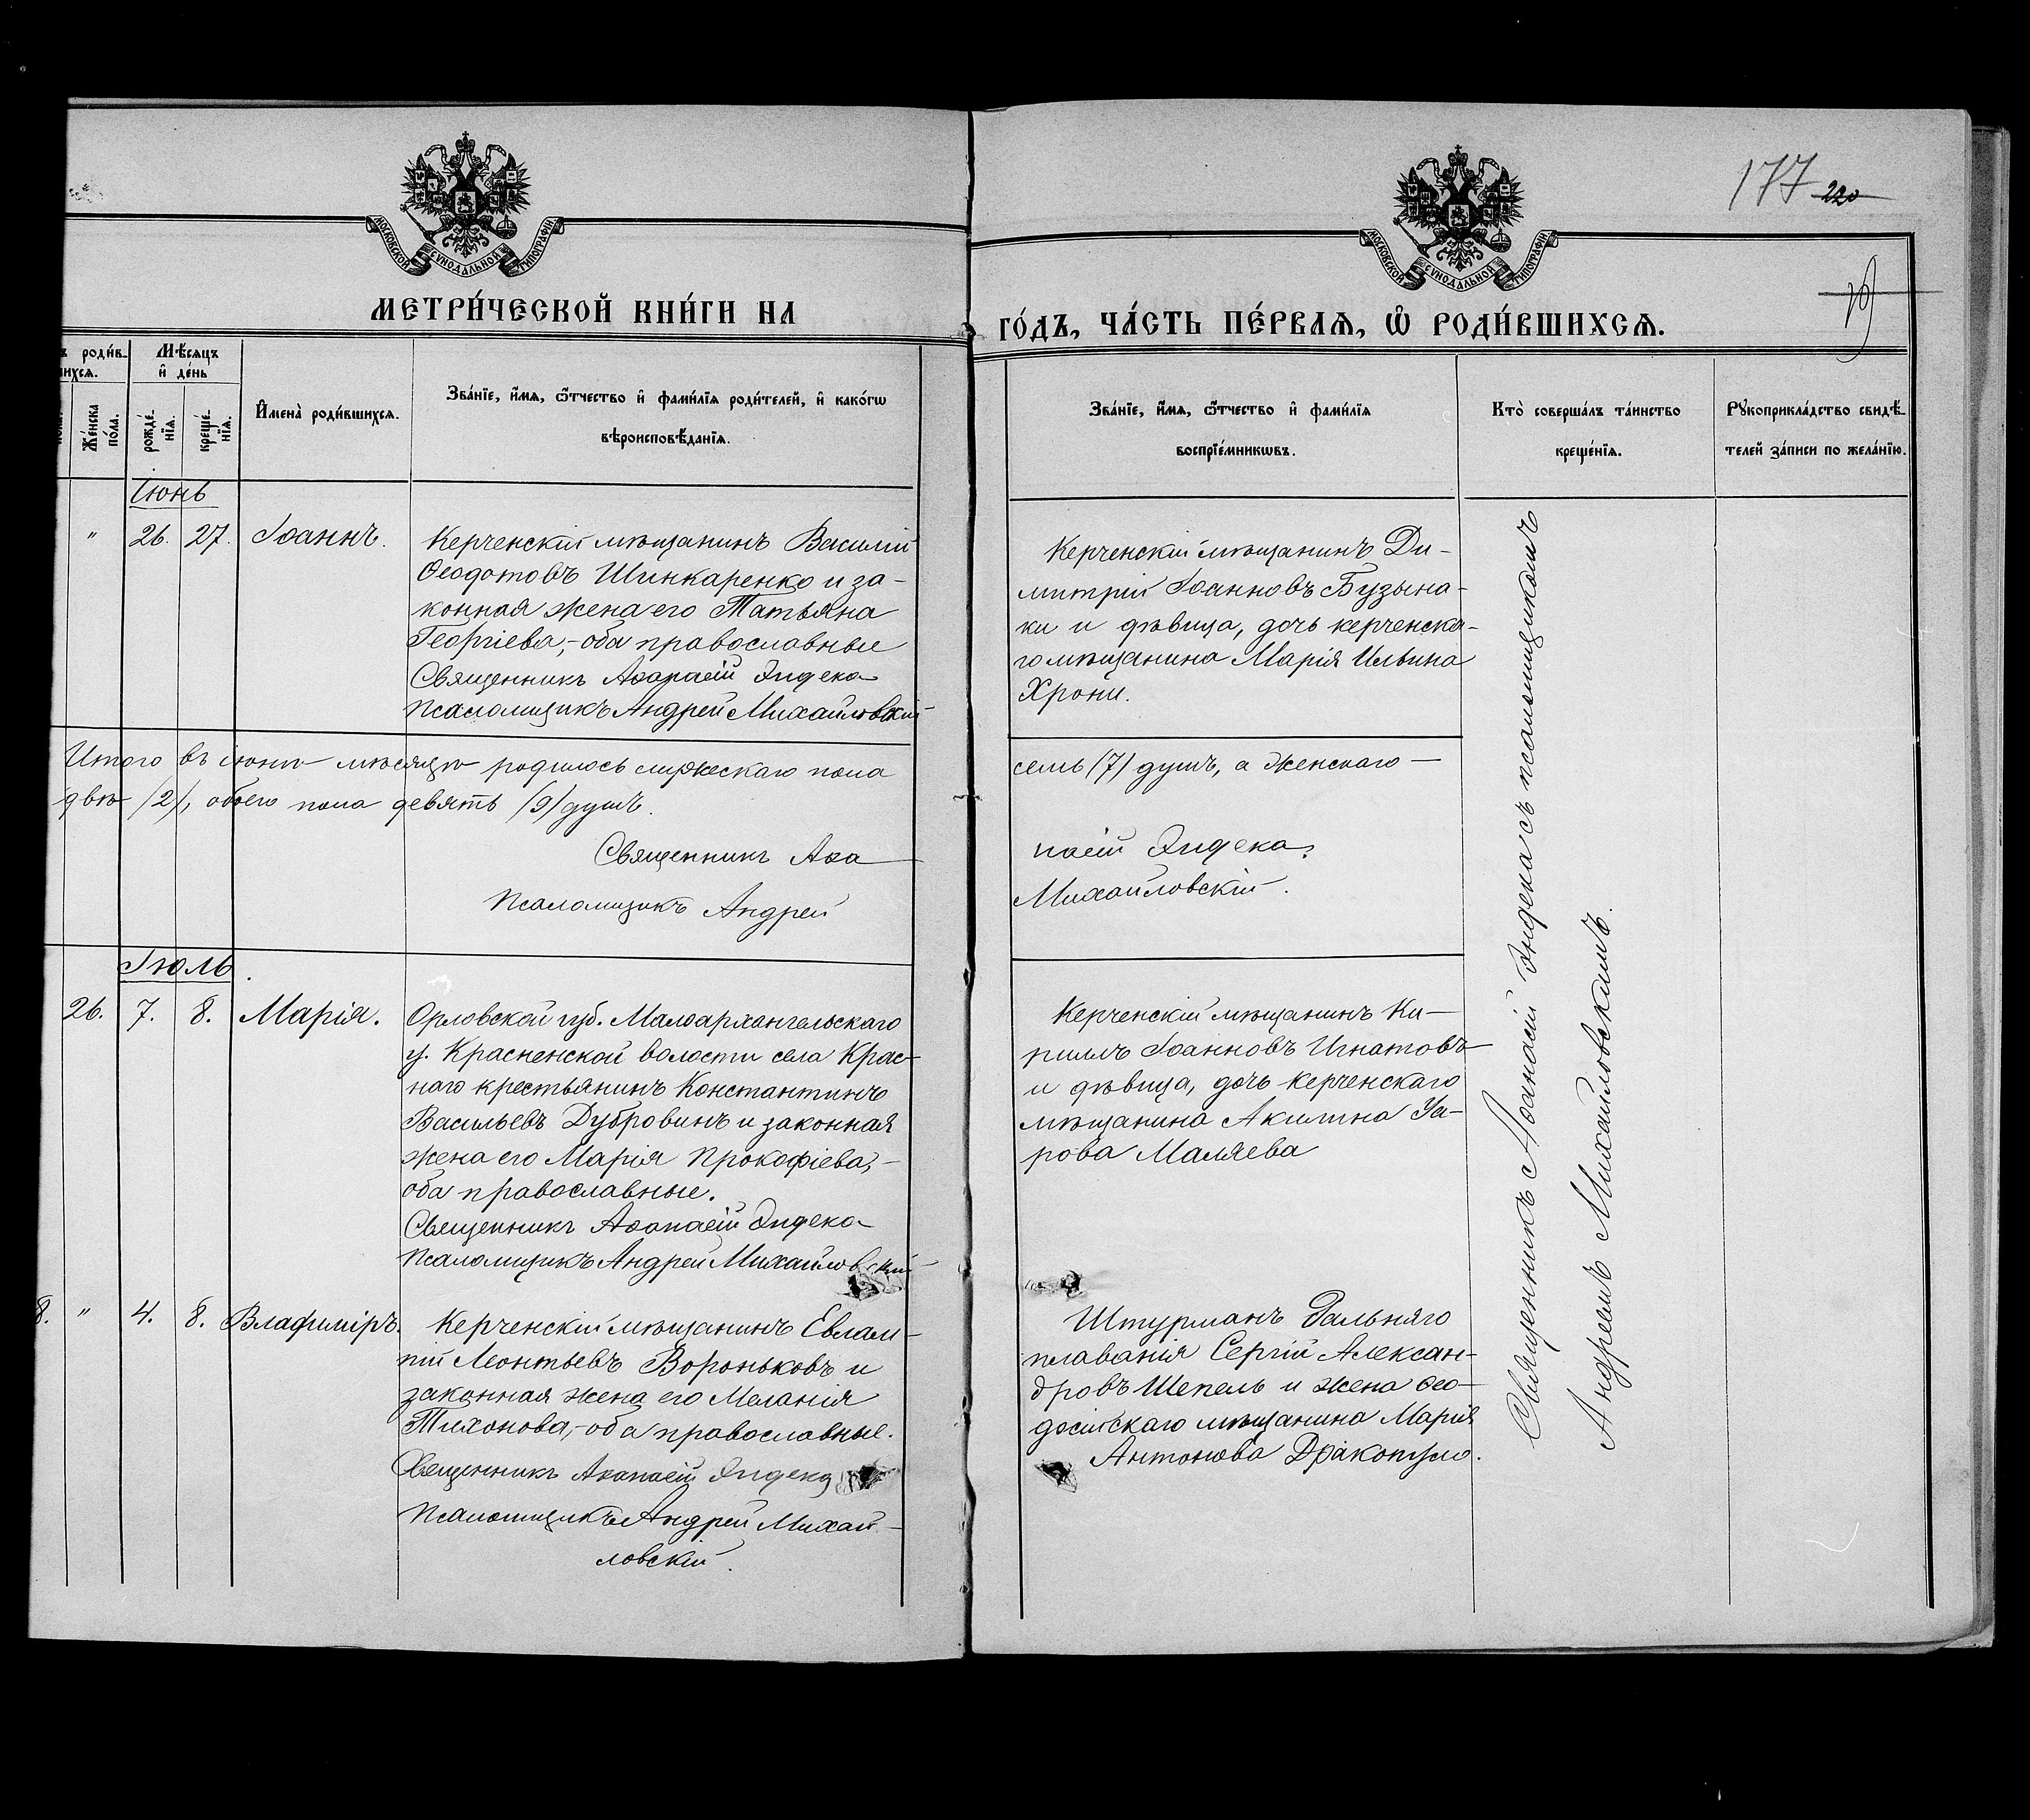 177 220
МОСКОВСКОЙ СѴНОДАЛЬНОЙ ТИПОГРАФІИ.
МОСКОВСКОЙ СѴНОДАЛЬНОЙ ТИПОГРАФІИ.
МЕТРИ́ЧЕСКОЙ КНИ́ГИ НА
ГО́ДЪ, ЧА́СТЬ ПЕ́РВАѦ, Ѡ҆ РОДИ́ВШИХСѦ.
ъ роди́в-
шихсѧ.
Же́нска
по́ла.
Мѣ́сѧцъ
и҆ де́нь
рожде́-
нїѧ.
креще́-
нїѧ.
И҆мена̀ роди́вшихсѧ.
Зва́нїе, и҆́мѧ, ѻ҆́тчество и҆ фами́лїѧ роди́телей, и҆ како́гѡ
вѣроисповѣ́данїѧ.
Зва́нїе, и҆́мѧ, ѻ҆́тчество и҆ фами́лїѧ
воспрїе́мникѡвъ.
Кто̀ соверша́лъ та́инство
креще́нїѧ.
Рꙋкоприкла́дство свидѣ́-
телей за́писи по жела́нїю.
Іюнь
" 26. 27. Іоаннъ.
Керченскій мѣщанинъ Василій
Ѳеодотовъ Шинкаренко и за-
конная жена его Татьяна
Георгіева,- оба православные
Священникъ Аѳанасій Эндека
Псаломщикъ Андрей Михайловскій
Керченскій мѣщанинъ Ди-
митрій Іоанновъ Бузына-
ки и дѣвица, дочь керченска-
го мѣщанина Марія Ильина
Хрони.
Итого въ іюнѣ мѣсяцѣ родилось мужескаго пола
семь (7) душъ, а женскаго —
двѣ (2), обоего пола девять (9) душъ.
Священникъ Аѳа
насій Эндека
Псаломщикъ Андрей
Михайловскій.
Іюль.
26. 7. 8. Марія.
Орловской губ. Малоархангельскаго
у. Красненской волости села Крас-
наго крестьянинъ Константинъ
Васильевъ Дубровинъ и законная
жена его Марія Прокофіева,-
оба православные.
Священникъ Аѳанасій Эндека
Псаломщикъ Андрей Михайловскій
Керченскій мѣщанинъ Ки-
риллъ Іоанновъ Игнатовъ
и дѣвица, дочь керченскаго
мѣщанина Акилина Уа-
рова Маляева
8. " 4. 8. Владиміръ.
Керченскій мѣщанинъ Евлам-
пій Леонтьевъ Вороньковъ и
законная жена его Меланія
Тихонова,- оба православные.
Священникъ Аѳанасій Эндека
Псаломщикъ Андрей Михай-
ловскій.
Штурманъ дальняго
плаванія Сергій Алексан-
дровъ Шепель и жена Ѳео-
досійскаго мѣщанина Марія
Антонова Дракопуло.
Священникъ Аѳанасій Эндека съ псаломщикомъ
Андреемъ Михайловскимъ.